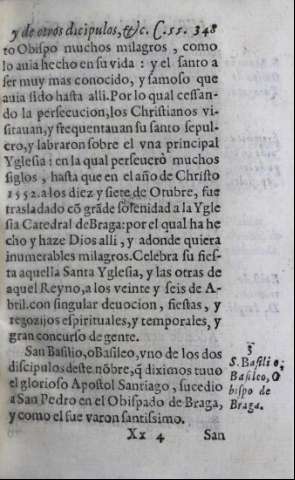 y de otros dicipulos, &c. C. 55. 348
to Obispo muchos milagros, como
lo auia hecho en su vida: y el santo a
ser muy mas conocido, y famoso que
auia sido hasta alli. Por lo qual cessan-
do la persecucion, los Christianos vi-
sitauan, y frequentauan su santo sepul-
cro, y labraron sobre el vna principal
Yglesia: en la qual perseuerò muchos
siglos, hasta que en el año de Christo
1552. a los diez y siete de Otubre, fue
trasladado cõ grãde solenidad a la Ygle
sia Catedral de Braga: por el qual ha he
cho y haze Dios alli, y adonde quiera
inumerables milagros. Celebra su fies-
ta aquella Santa Yglesia, y las otras de
aquel Reyno, a los veinte y seis de A-
bril. con singular deuocion, fiestas, y
regozijos espirituales, y temporales, y
gran concurso de gente.
San Basilio, o Basileo, vno de los dos
discipulos deste nõbre, q̃ diximos tuuo
el glorioso Apostol Santiago, sucedio
a San Pedro en el Obispado de Braga,
y como el fue varon santissimo.
Xx 4 San
3
S. Basilio,
Basileo, O
bispo de
Braga.